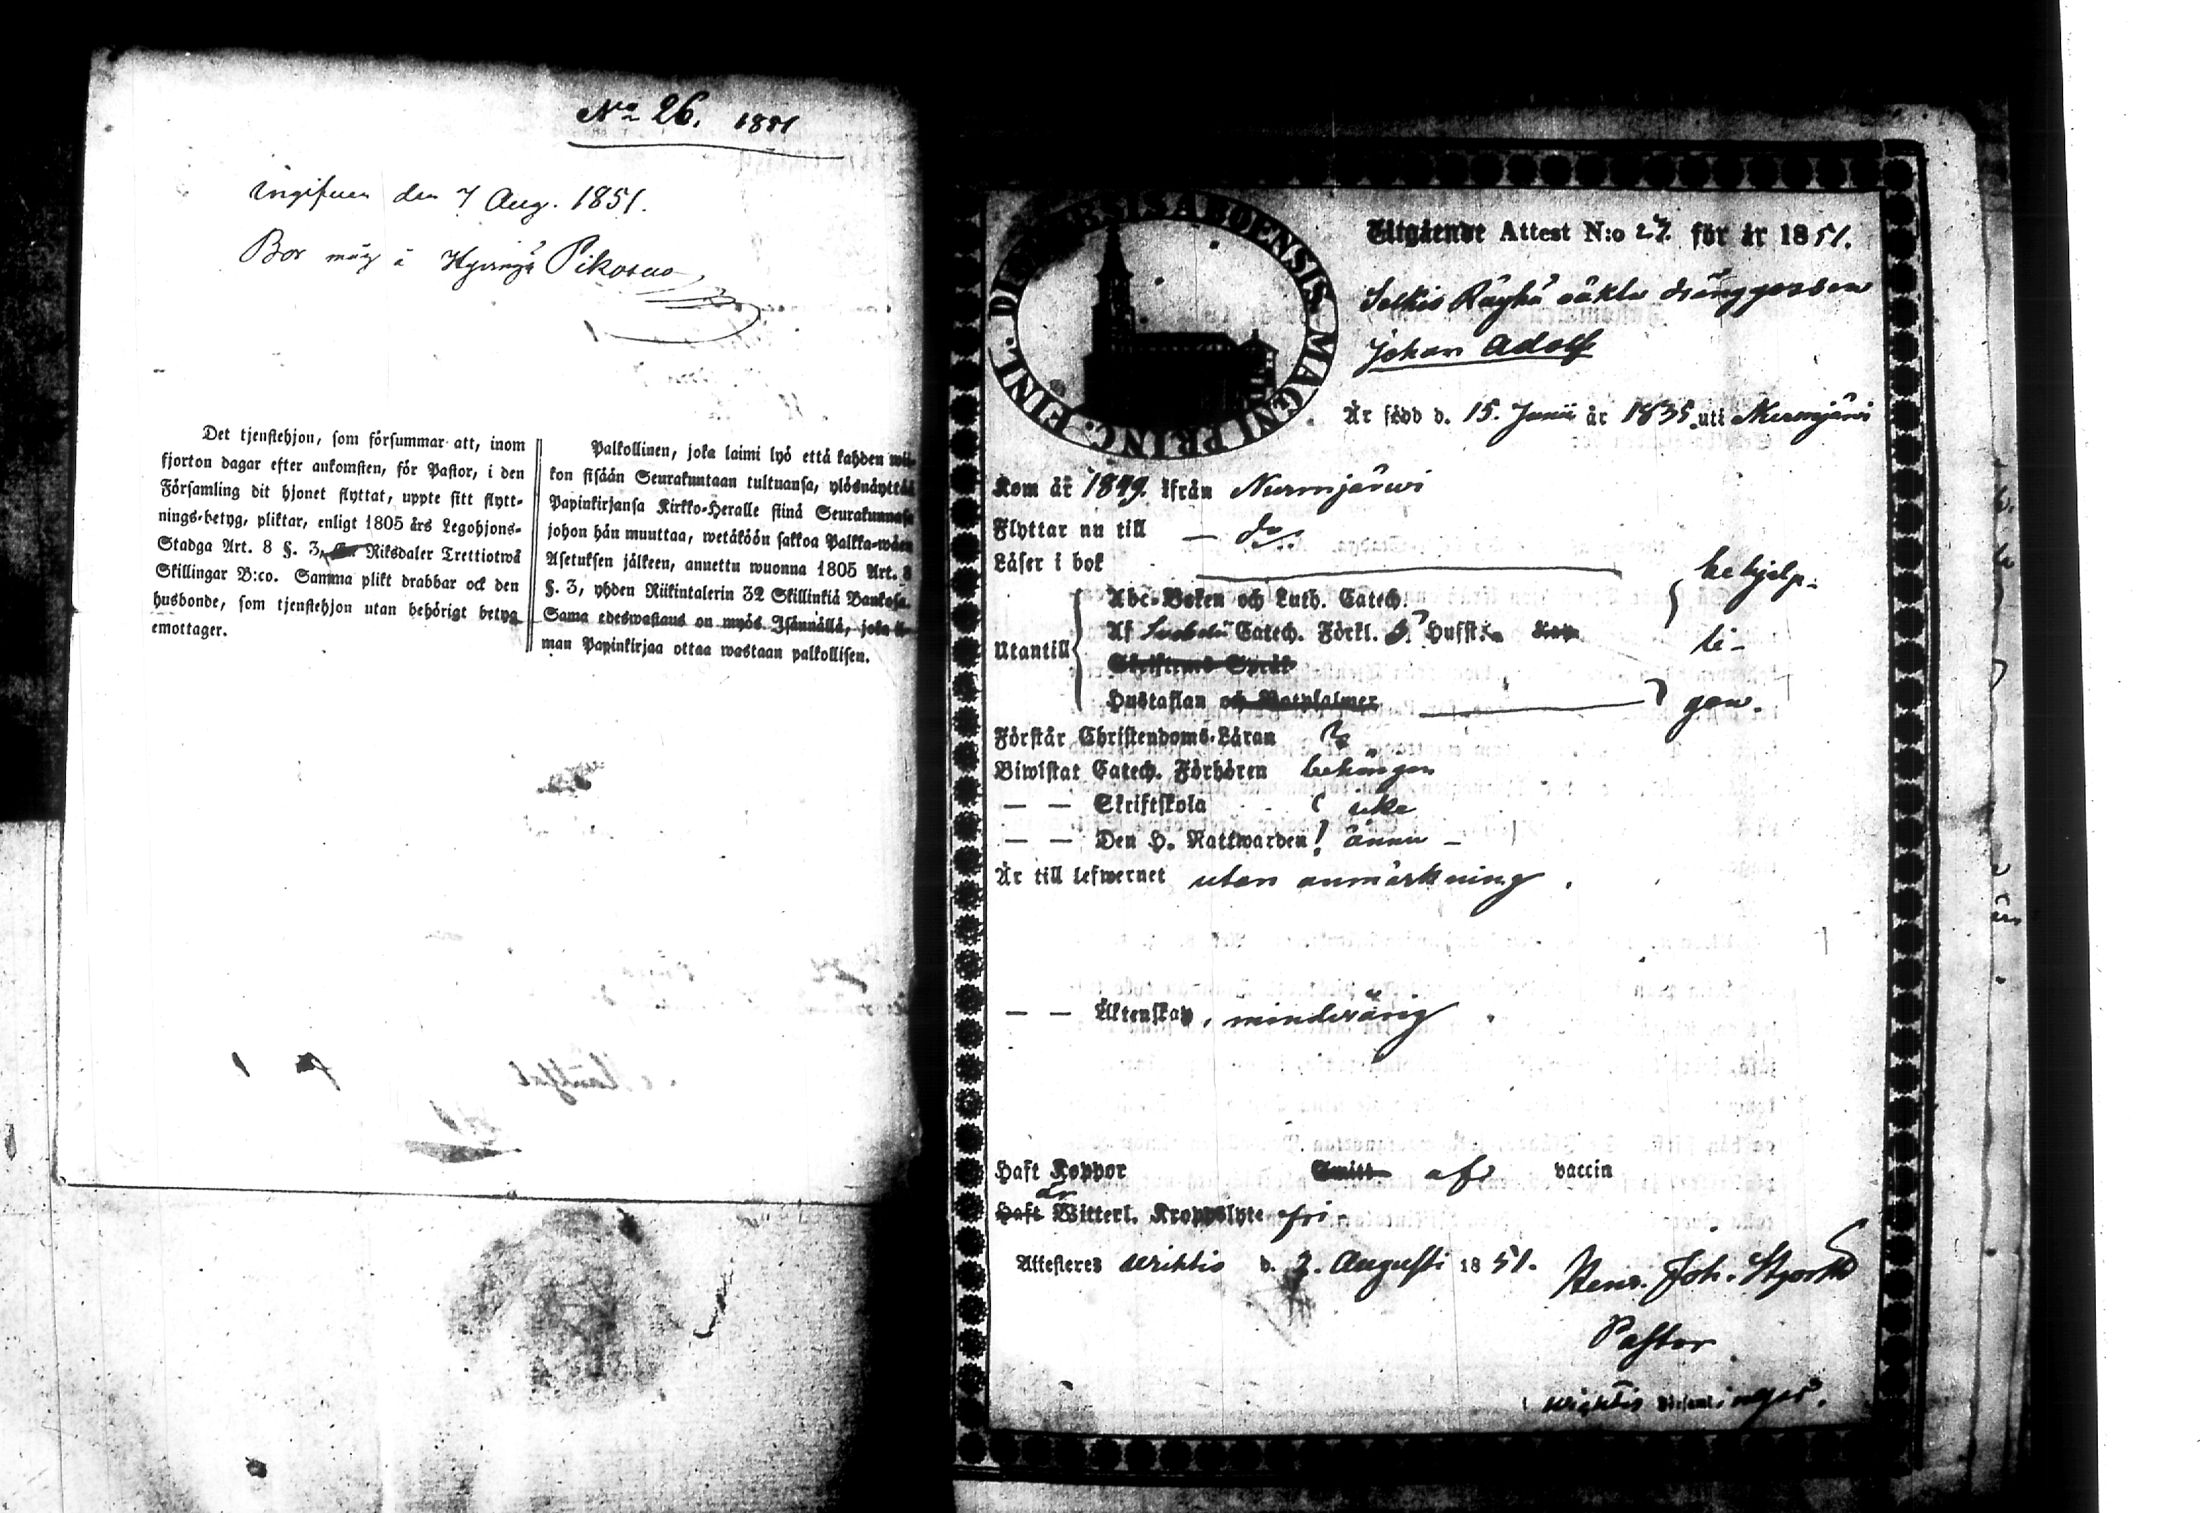 No 26. 1851
Ingifven den 7 Aug. 1851.
Bor möj å Hyvingä Pikosuo
Det tjenstehjon, som försummar att, inom
fjorton dagar efter ankomsten, för Pastor, i den
Församling dit hjonet flyttat, uppte sitt flytt-
nings-betyg, pliktar, enligt 1805 års Legohjons-
Stadga Art. 8 §. 3, Riksdaler Trettiotwå
Skillingar B:co. Samma plikt drabbar ock den
husbonde, som tjenstehjon utan behörigt betyg
emottager.
Palkollinen, joka laimi lyö että kahden wii-
kon sisään Seurakuntaan tultuansa, ylösnäyttää
Papinkirjansa Kirkko-Heralle siinä Seurakunnasa
johon hän muuttaa, wetäköön sakkoa Palkka-wäen
Asetuksen jälkeen, annettu wuonna 1805 Art. 8
§. 3, yhden Riikintalerin 32 Skillinkiä Bankosa.
Sama edeswastaus on myös Isännällä, joka il-
man Papinkirjaa ottaa wastaan palkollisen.
FINL. DIOECESIS ABOENSIS MAGNI PRINC.
Utgående Attest N:o 27. för år 1851.
Selkis Räyhä oäkta dränggossen
Johan Adolf
Är född d. 15. Junii år 1835. uti Nurmijärvi
Kom år 1849. ifrån Nurmijärwi
Flyttar nu till — do.
Läser i bok
Abc-Boken och Luth. Catech. behjelp-
Utantill Af Catech. Förkl. Husst. li-
Skriftenes Språk
Hustaflan och Botpsalmer gen.
Förstår Christendoms-Läran
Biwistat Catech. Förhören behörigen
— — Skriftskola icke
— — Den H. Nattwarden ännu —
Är till lefwernet utan anmärkning.
— — Äktenskap, minderårig.
Haft Koppor Smitt af vaccin
är
Haft Witterl. Kroppslyte fri.
Attesteres Wichtis d. 2. Augusti 1851. Henr. Joh.
Pastor
i Wichtis Församlingar.